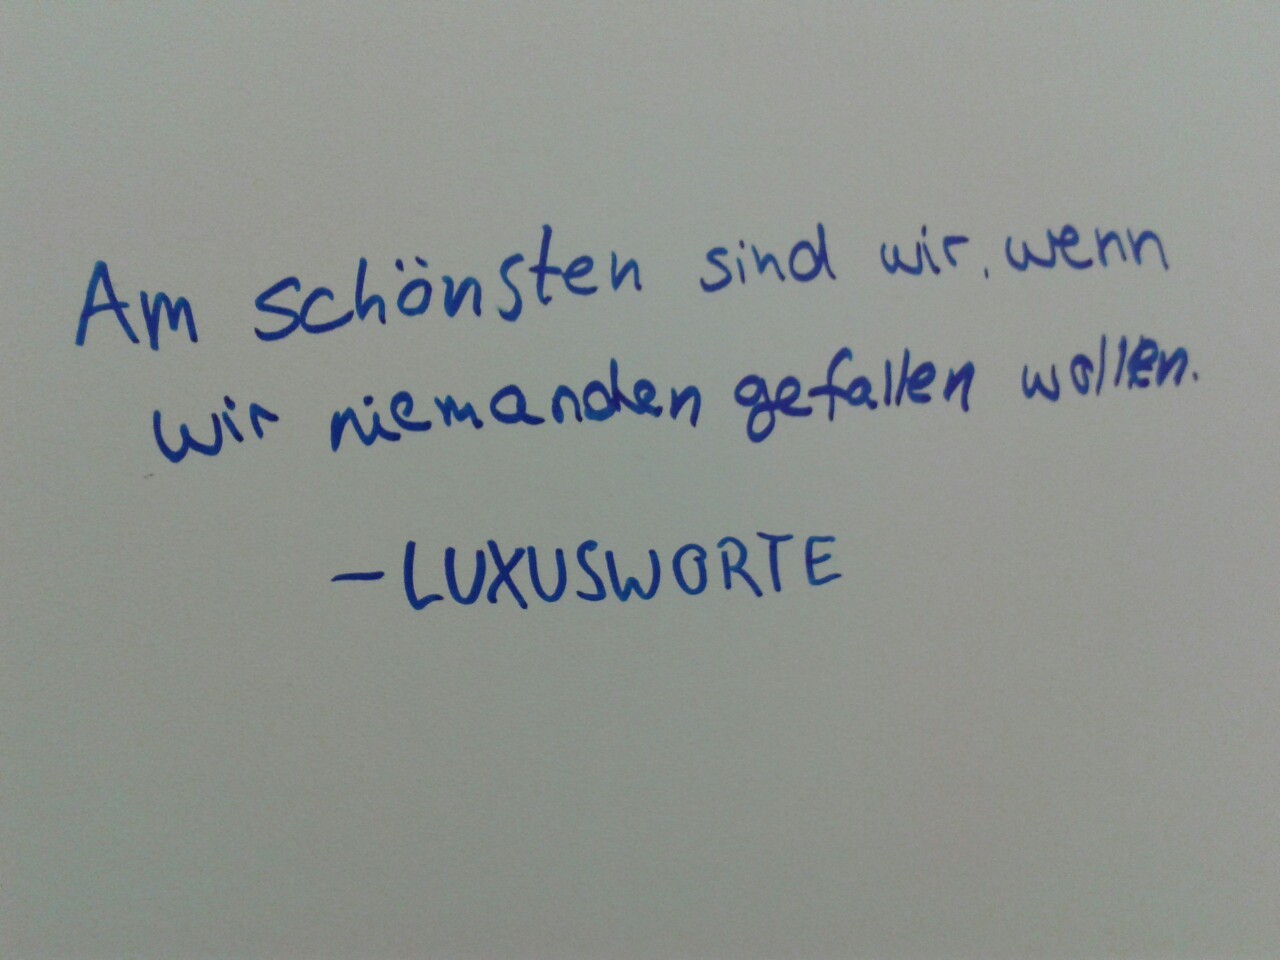 Am schönsten sind wir, wenn
wir niemanden gefallen wollen.
-LUXUSWORTE